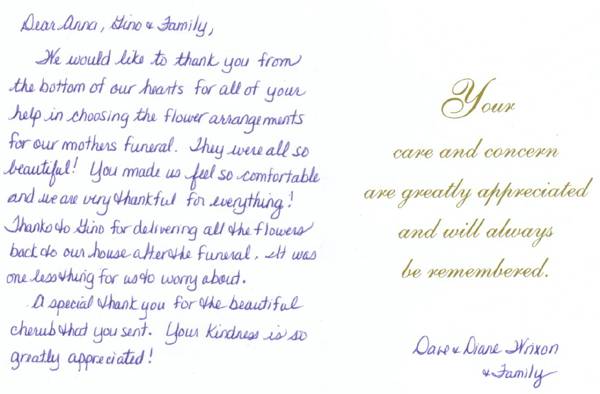 Dear Anna, Gino & Family,
We would like to thank you from
the bottom of our hearts for all of your
help in choosing the flower arrangements
for our mothers funeral. They were all so
beautiful! You made us feel so comfortable
and we are very thankful for everything!
Thanks to Gino for delivering all the flowers
back to our house after the funeral. It was
one less thing for us to worry about.
A special thank you for the beautiful
cherub that you sent. Your kindness is so
greatly appreciated!
Your
care and concern
are greatly appreciated
and will always
be remembered.
Dave & Diane Wrixon
& Family